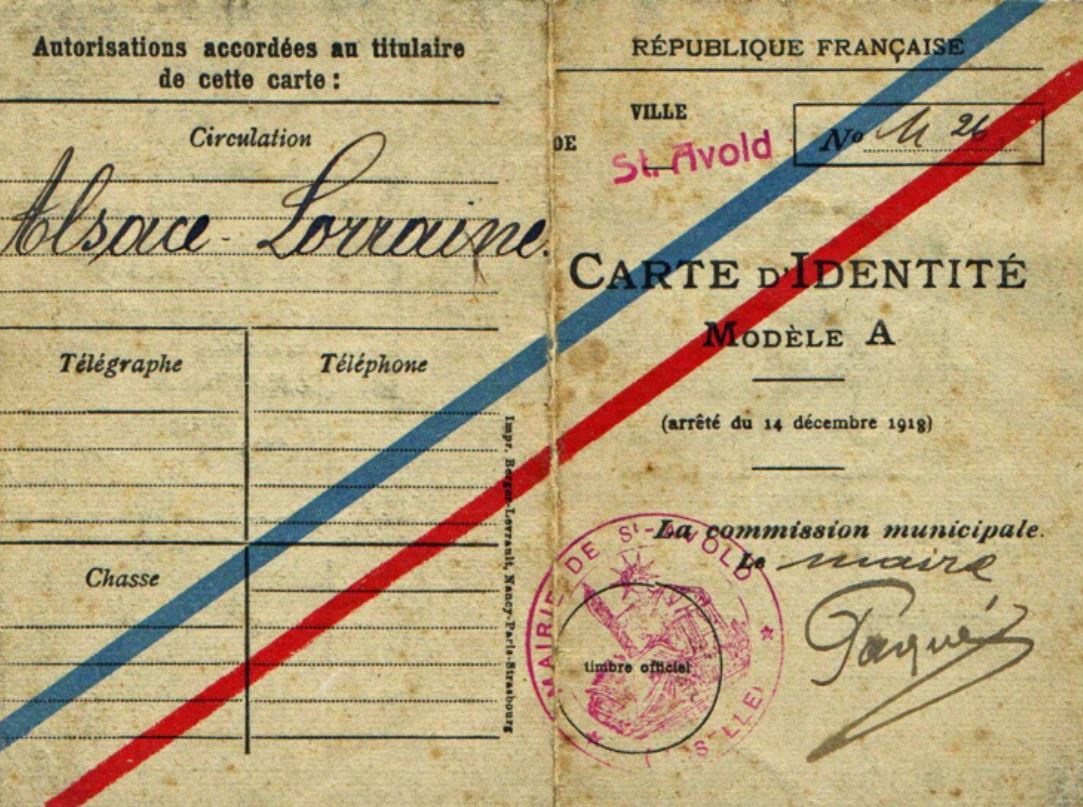 Autorisations accordées au titulaire
de cette carte :
Circulation
Alsace-Lorraine.
Télégraphe
Téléphone
Chasse
Impr. Berger-Levrault, Nancy-Paris-Strasbourg
RÉPUBLIQUE FRANÇAISE
VILLE
DE
St. Avold
No 26
CARTE D'IDENTITÉ
MODÈLE A
(arrêté du 14 décembre 1918)
La commission municipale.
Le maire
MAIRIE DE St-AVOLD
timbre officiel